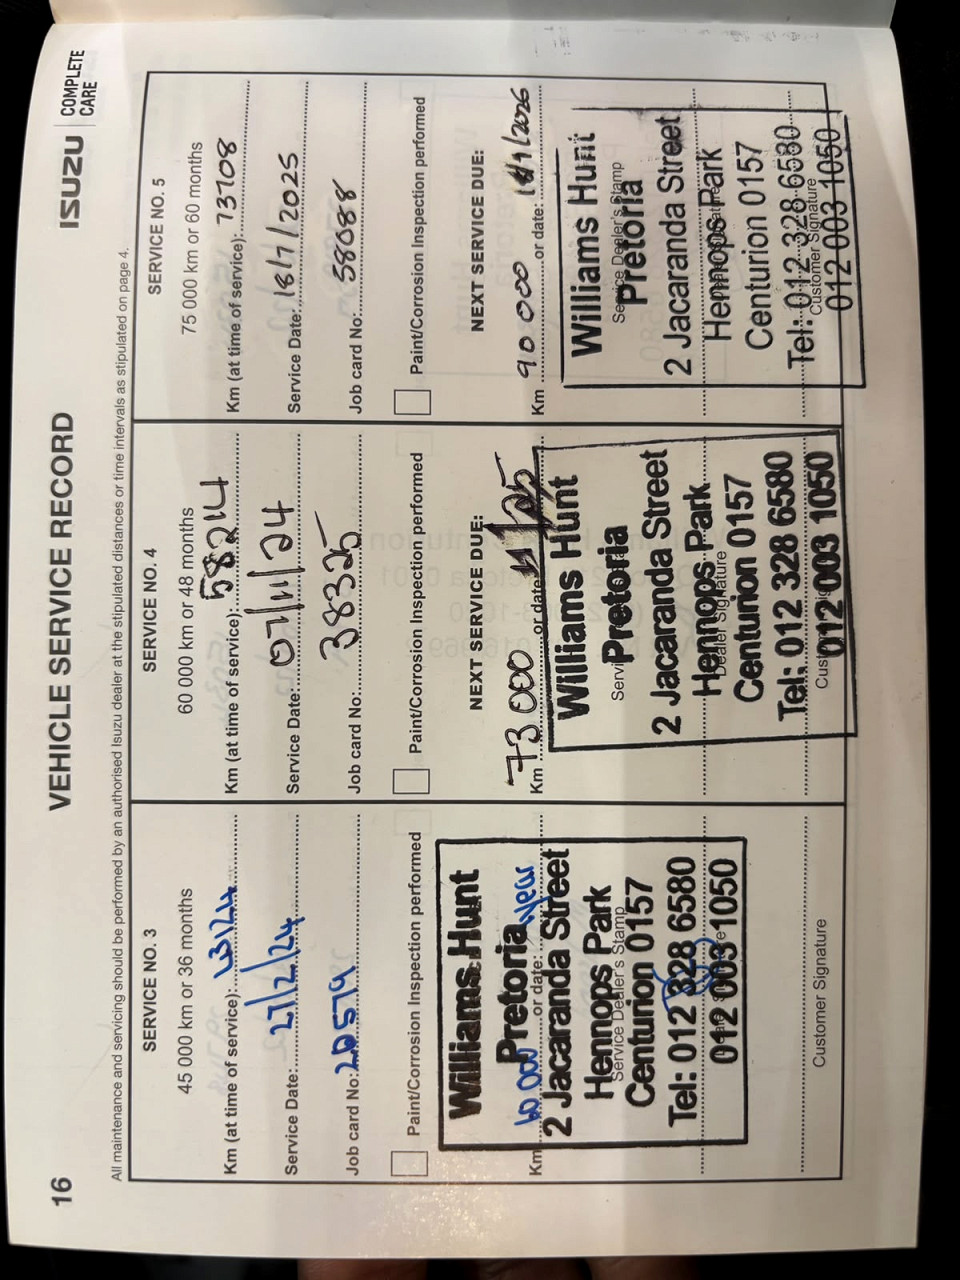 16
VEHICLE SERVICE RECORD
ISUZU
COMPLETE
CARE
All maintenance and servicing should be performed by an authorised Isuzu dealer at the stipulated distances or time intervals as stipulated on page 4.
SERVICE NO. 3
45 000 km or 36 months
Km (at time of service):
Service Date: 27/2/24
Job card No: 20579
Paint/Corrosion Inspection performed
Williams Hunt
Pretoria
Km 60 000 or date: 1 year
2 Jacaranda Street
Hennops Park
Service Dealer's Stamp
Centurion 0157
Tel: 012 328 6580
012 003 1050
Customer Signature
SERVICE NO. 4
60 000 km or 48 months
Km (at time of service): 58214
Service Date: 07/11/24
Job card No: 38325
Paint/Corrosion Inspection performed
NEXT SERVICE DUE:
Km 73 000 or date:
Williams Hunt
Pretoria
2 Jacaranda Street
Hennops Park
Dealer Signature
Centurion 0157
Tel: 012 328 6580
012 003 1050
SERVICE NO. 5
75 000 km or 60 months
Km (at time of service): 73708
Service Date: 18/7/2025
Job card No: 58088
Paint/Corrosion Inspection performed
NEXT SERVICE DUE:
Km 90 000 or date: 18/7/2026
Williams Hunt
Service Dealer's Stamp
Pretoria
2 Jacaranda Street
Hennops Park
Centurion 0157
Tel: 012 328 6580
Customer Signature
012 003 1050